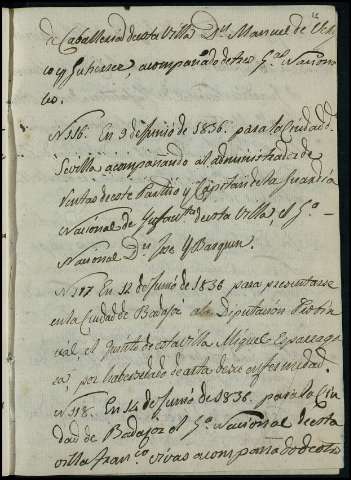 de Caballeria de esta Villa Dn. Manuel de
co y Gutierrez, acompañado de tres Gs. Naciona
les.
N 116. En 9 de Junio de 1836. para la Ciudad de
Sevilla acompañando al administrador de
Rentas de este Partido y Capitan de la Guardia
Nacional de Infanta. de esta Villa, el Go.
Nacional Dn. Jose Y Barquin.
N 117 En 12 de Junio de 1836 para presentarse
en la Ciudad de Badajoz a la Diputación Probin
cial, el Quinto de esta villa Miguel Esparrag
, por haversele dado de alta de su enfermedad.
N 118. En 14 de Junio de 1836. para la Ciu
dad de Badajoz el Go. Nacional de esta
villa Franco. Vivas acompañado de otro